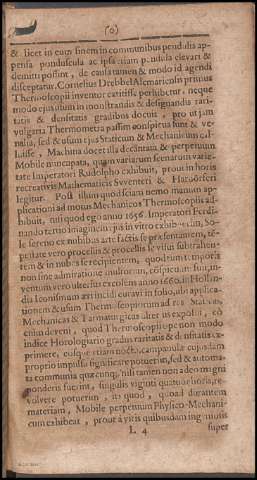 (o)
& licet in eum finem in communibus pendulis ap-
pensa ponduscula ac ipsa etiam pendula elevari &
demitti possint, de causa tamen & modo id agendi
disceptatur. Cornelius Drebbel Alcmariensis primus
Thermoscopii inventor extitisse perhibetur, neque
modo ejus usum in monstrandis & designandis rari-
tatis & densitatis gradibus docuit, pro ut jam
vulgaria Thermometra passim conspicua sunt & ve-
nalia, sed & usum ejus Staticum & Mechanicum cal-
luisse, Machina docet illa decantata & perpetuum
Mobile nuncupata, quam variarum scenarum varie-
tate Imperatori Rudolpho exhibuit, prout in horis
recreativis Mathematicis Svventeri & Harsdörferi
legitur. Post illum quod sciam nemo manum ap-
plicationi ad motus Mechanicos Thermoscopiis ad-
hibuit, nisi quod ego anno 1656. Imperatori Ferdi-
nando tertio imaginem in vitro exhibendam, So-
le sereno ex nubibus arte factis se præsentantem, tem-
pestate vero procellis & procellis se visui subtrahen-
tem & in nubes se recipientem, quod tum temporis
non sine admiratione multorum, conspicuum fuit, in-
ventum vero ulterius excolens anno 1660. in Hollan-
dia Leonissmum arti incidi curavi in folio, ubi applica-
tionem & usum Thermoscopiorum ad res Staticas,
Mechanicas & Tarmaturgicas ulterius exposui, co-
cum devenit, quod Thermoscopiis non modo
indice Horologiario gradus raritatis & densitatis ex-
primere, eosque etiam nocte campanulæ cujusdam
proprio impulsu significare potuerim, sed & automa-
ta communia quæcunque, nisi tamen non adeo magni
ponderis fuerint, singulis viginti quatuor horis, re-
volvere potuerim, in quod, quoad durantem
materiam, Mobile perpetuum Physico-Mechani-
cum exhibeat, prout à viris quibusdam ingeniosis
L 4
super